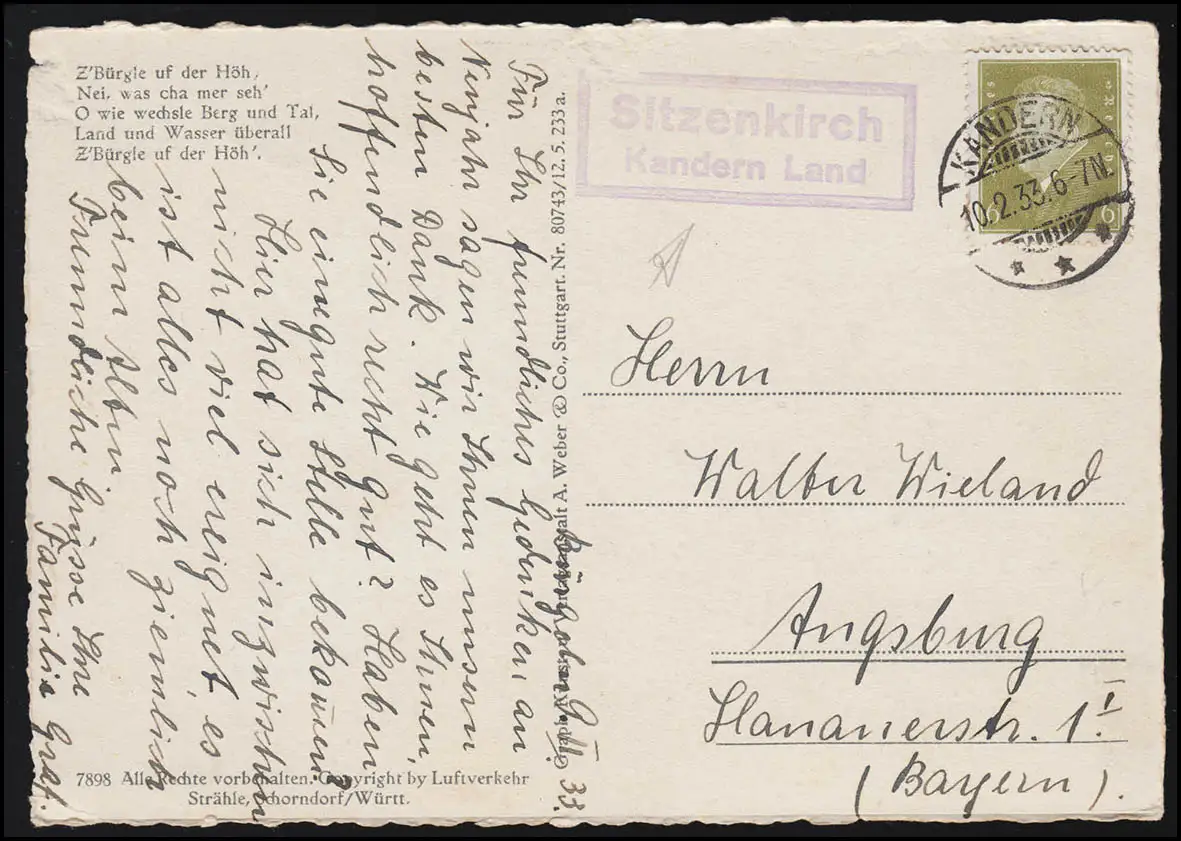 Z'Bürgle uf der Höh,
Nei, was cha mer seh'
O wie wechsle Berg und Tal,
Land und Wasser überall
Z'Bürgle uf der Höh'.
Bürgeln 9. II 33.
Für Ihr freundliches Gedenken an
Neujahr sagen wir Ihnen unsern
besten Dank. Wie geht es Ihnen,
hoffendlich recht gut? Haben
Sie eine gute Stelle bekommen?
Hier hat sich inzwischen
nicht viel ereignet, es
ist alles noch ziemlich
beim Alten.
Freundliche Grüsse Ihne
Familie Graf.
7898 Alle Rechte vorbehalten. Copyright by Luftverkehr
Strähle, Schorndorf/Württ.
Graph. Kunst- Verlagsanstalt A. Weber & Co., Stuttgart. Nr. 80743/12. 5. 233 a.
Sitzenkirch
Kandern Land
KANDERN
10.2.33.6-7N.
6 6
Herrn
Walter Wieland
Augsburg
Hanauerstr. 1.I
(Bayern).